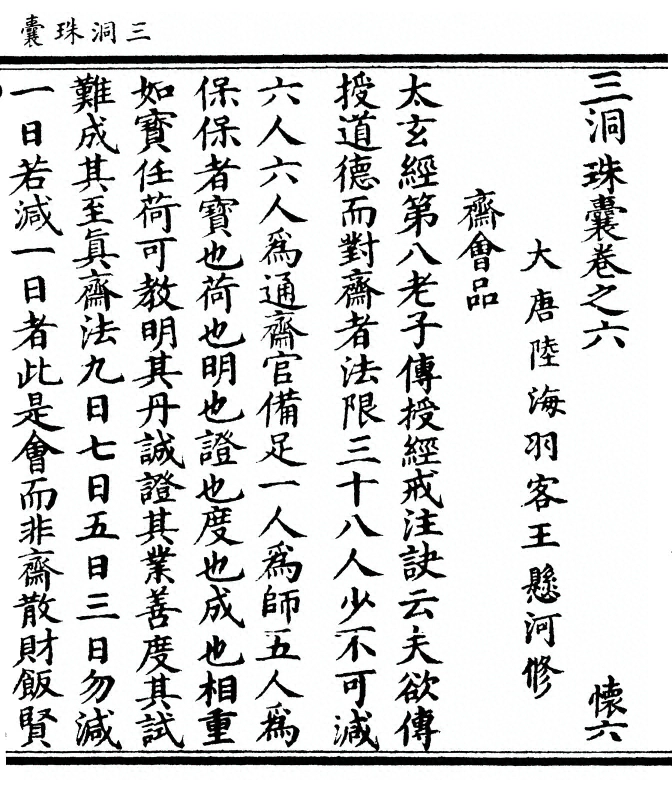 三洞珠囊
三洞珠囊卷之六 懷六
大唐陸海羽客王懸河修
齋會品
太玄經第八老子傳授經戒注訣云夫欲傳
授道德而對齋者法限三十八人少不可減
六人六人爲通齋官備足一人爲師五人爲
保保者寶也荷也明也證也度也成也相重
如寶任荷可教明其丹誠證其業善度其試
難成其至眞齋法九日七日五日三日勿減
一日若減一日者此是會而非齋散財飯賢